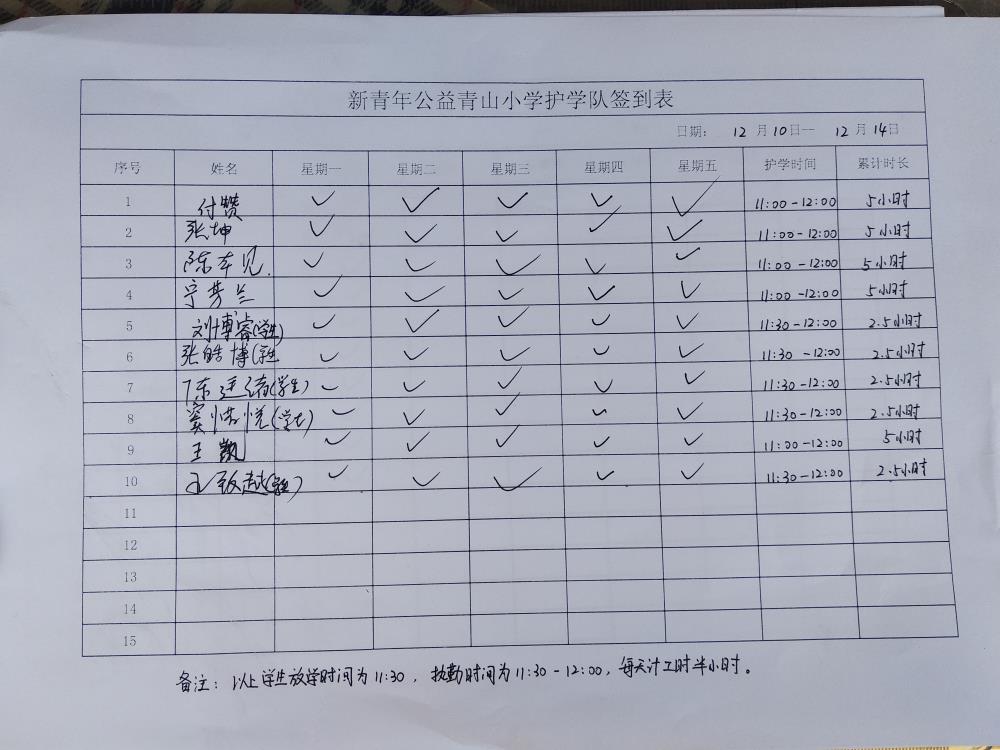 新青年公益青山小学护学队签到表
日期： 12 月 10 日— 12 月 14 日
序号 姓名 星期一 星期二 星期三 星期四 星期五 护学时间 累计时长
1 付赞 ✓ ✓ ✓ ✓ ✓ 11:00-12:00 5小时
2 张坤 ✓ ✓ ✓ ✓ ✓ 11:00-12:00 5小时
3 陈本见 ✓ ✓ ✓ ✓ ✓ 11:00-12:00 5小时
4 宁芳兰 ✓ ✓ ✓ ✓ ✓ 11:00-12:00 5小时
5 刘博睿(学生) ✓ ✓ ✓ ✓ ✓ 11:30-12:00 2.5小时
6 张皓博(学生 ✓ ✓ ✓ ✓ ✓ 11:30-12:00 2.5小时
7 陈(学生) ✓ ✓ ✓ ✓ ✓ 11:30-12:00 2.5小时
8 窦悦(学生) ✓ ✓ ✓ ✓ ✓ 11:30-12:00 2.5小时
9 王凯 ✓ ✓ ✓ ✓ ✓ 11:00-12:00 5小时
10 (学生) ✓ ✓ ✓ ✓ ✓ 11:30-12:00 2.5小时
11
12
13
14
15
备注：以上学生放学时间为11:30，执勤时间为11:30-12:00，每天计工时半小时。